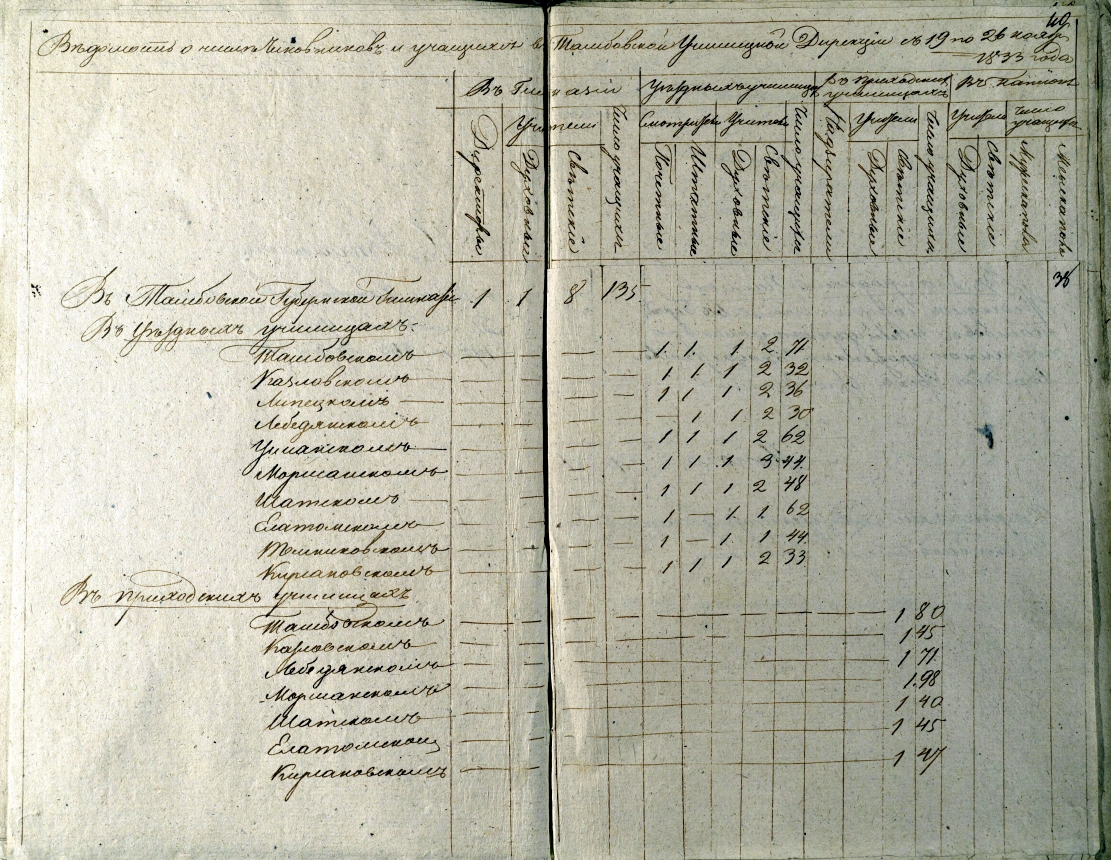 49
Вѣдомость о числѣ Чиновниковъ и учащихся въ Тамбовской Училищной Дирекціи съ 19 по 26 ноября
1833 года
Въ Гимназіи Уѣздныхъ училищахъ Въ приходскихъ училищахъ Въ
Учители Число учащихся Смотрители Учители Число учащихся Надзиратели Учители Число учащихся Учители число учащихся
Директоры Духовные Свѣтскіе Почетные Штатные Духовные Свѣтскіе Духовные Свѣтскіе Духовные Свѣтскіе
Въ Тамбовской Губернской Гимназіи 1 1 8 135 38
Въ Уѣздныхъ училищахъ:
Тамбовскомъ — — — — 1. 1. 1 2 71
Козловскомъ — — — — 1 1 1 2 32
Липецкомъ — — — — 1 1 1 2 36
Лебедянскомъ — — — — — 1 1 2 30
Усманскомъ — — — — 1 1 1 2 62
Моршанскомъ — — — — 1 1 1 3 44
Шатскомъ — — — — 1 1 1 2 48
Елатомскомъ — — — — 1 — 1 1 62
Темниковскомъ — — — — 1 — 1 1 44
Кирсановскомъ — — — — 1 1 1 2 33
Въ приходскихъ училищахъ
Тамбовскомъ — — — — — — — — — — — 1 80
Козловскомъ — — — — — — — — — — — 1 45
Лебедянскомъ — — — — — — — — — — — 1 71
Моршанскомъ — — — — — — — — — — — 1. 98
Шатскомъ — — — — — — — — — — — 1 40
Елатомскомъ — — — — — — — — — — — 1 45
Кирсановскомъ — — — — — — — — — — — 1 47